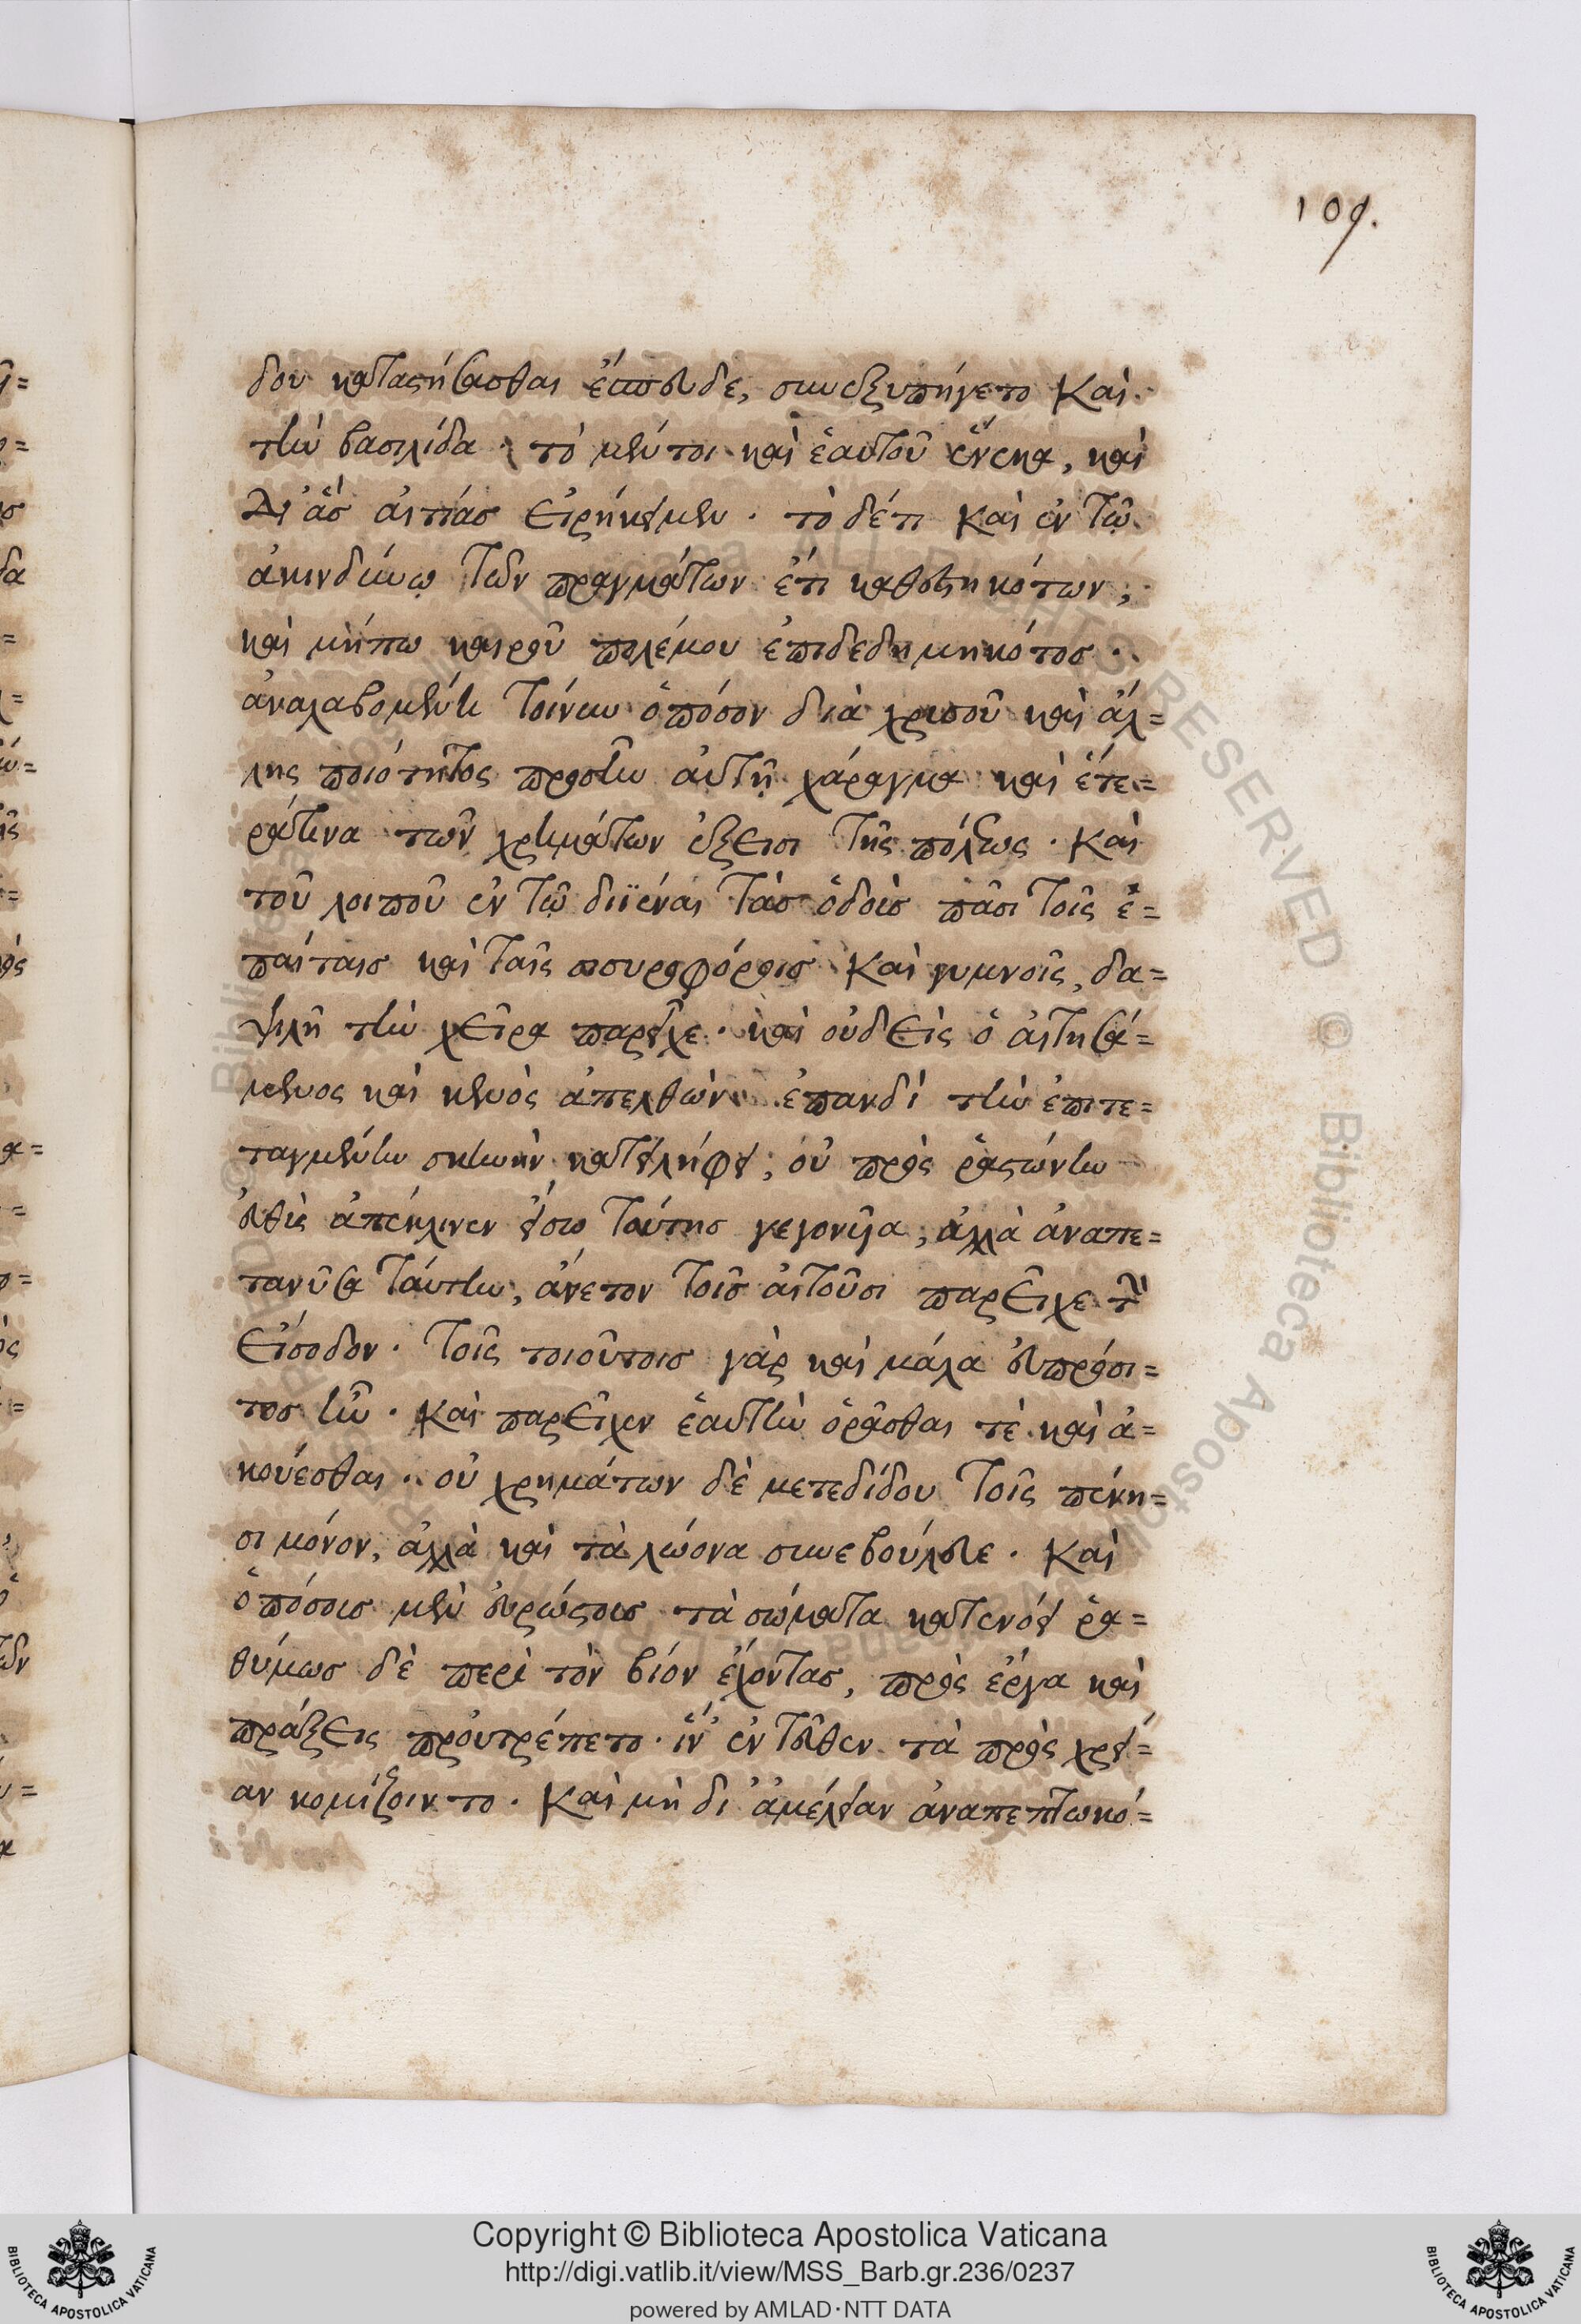 109.
δου καταστήσασθαι ἔσπευδε, συνεξυπήγετο καὶ
τὴν βασιλίδα · τὸ μέντοι καὶ ἑαυτοῦ ἕνεκα, καὶ
δι' ἃσ αἰτίασ εἰρήκειμεν · τὸ δέτι καὶ ἐν τῷ
ἀκινδύνῳ τῶν πραγμάτων ἔτι καθεστηκότων,
καὶ μήπω καιροῦ πολέμου ἐπιδεδημηκότοσ ·
ἀναλαβομένη τοίνυν ὁπόσον διὰ χρυσοῦ καὶ ἄλ=
λης ποιότητος προσῆν αὐτῇ χάραγμα καὶ ἕτε=
ράτινα τῶν χρημάτων ἔξεισι τῆς πόλεως · καὶ
τοῦ λοιποῦ ἐν τῷ διϊέναι τὰσ ὁδοὺσ πᾶσι τοῖς ἐ=
παίταισ καὶ τοῖς σισυροφόροισ καὶ γυμνοῖς, δα=
ψιλῆ τὴν χεῖρα παρεῖχε · καὶ οὐδεὶς ὁ αἰτησά=
μενος καὶ κενὸς ἀπελθὼν · ἐπανδὲ τὴν ἐπιτε=
ταγμένην σκηνὴν κατειλήφει, οὐ πρὸς ῥαστώνην
εὐθὺς ἀπέκλινεν εἴσω ταύτησ γεγονυῖα, ἀλλὰ ἀναπε=
τανῦσα ταύτην, ἄνετον τοῖσ αἰτοῦσι παρεῖχε τὴν
εἴσοδον · τοῖς τοιούτοισ γὰρ καὶ μάλα εὐπρόσι=
τοσ ἦν · καὶ παρεῖχεν ἑαυτὴν ὁρᾶσθαι τὲ καὶ ἀ=
κούεσθαι · οὐ χρημάτων δὲ μετεδίδου τοῖς πένη=
σι μόνον, ἀλλὰ καὶ τὰ λώονα συνεβούλευε · καὶ
ὁπόσουσ μὲν εὐρώστουσ τὰ σώματα κατενόει ῥα=
θύμωσ δὲ περὶ τὸν βίον ἔχοντασ, πρὸς ἔργα καὶ
πράξεις προὐτρέπετο · ἵν' ἐντεῦθεν τὰ πρὸς χρεί=
αν κομίζοιντο · καὶ μὴ δι' ἀμέλειαν ἀναπεπτωκό=
Copyright © Biblioteca Apostolica Vaticana
http://digi.vatlib.it/view/MSS_Barb.gr.236/0237
powered by AMLAD·NTT DATA
BIBLIOTECA APOSTOLICA VATICANA
BIBLIOTECA APOSTOLICA VATICANA